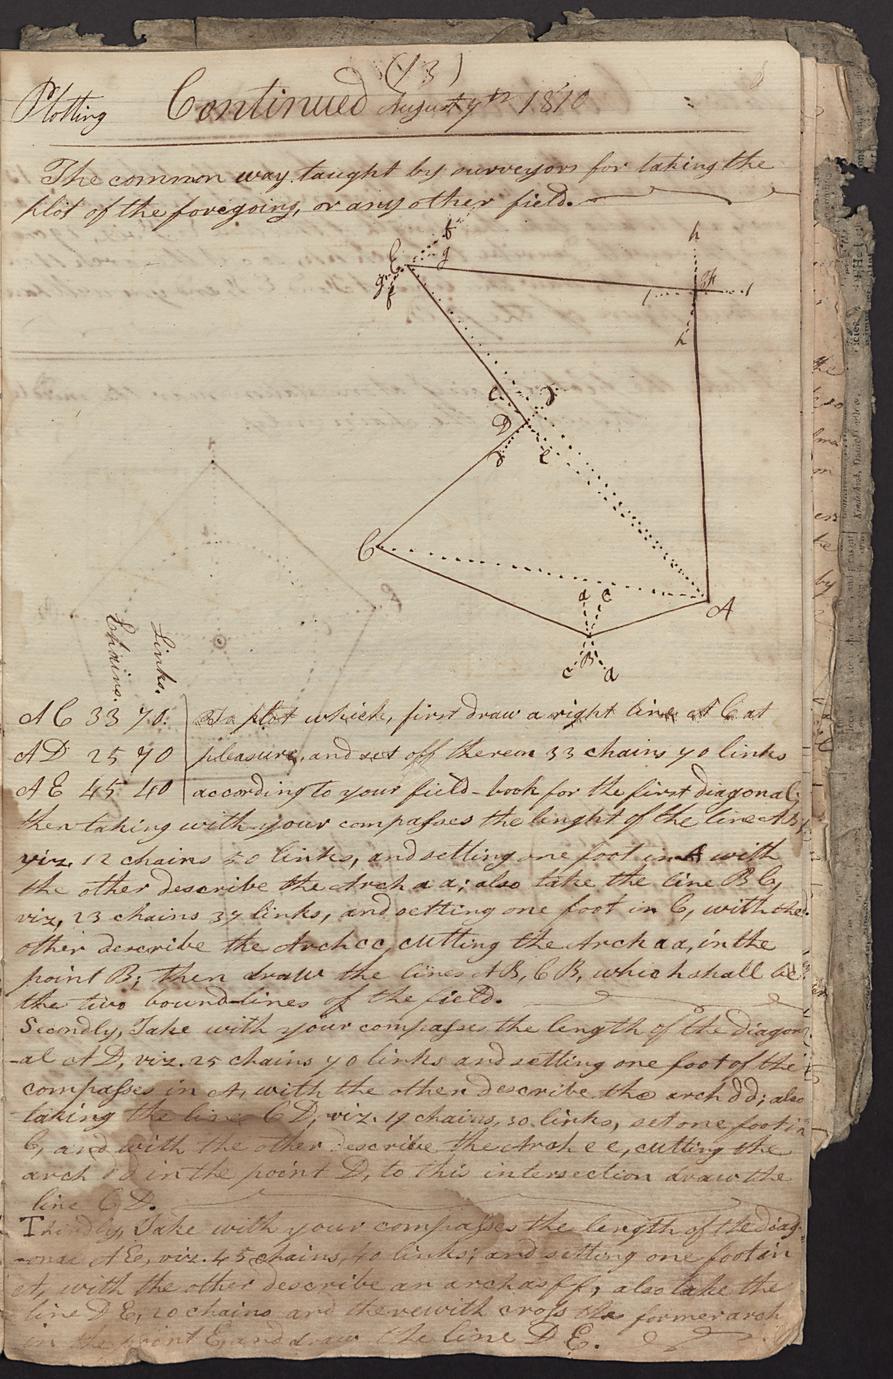 (13)
Plotting Continued August 7th 1810
The common way taught by surveyors for taking the
plot of the foregoing, or any other field.
f
E g
g
f
h
l l
h
e d
D
d e
C
A
a c
B
c a
Chains. Links.
AC 33 70
AD 25 70
AE 45 40
To plot which, first draw a right line AC at
pleasure, and set off thereon 33 chains 70 links
according to your field-book for the first diagonal;
then taking with your compasses the lenght of the line AB,
viz. 12 chains 40 links, and setting one foot in A with
the other describe the Arch aa; also take the line BC,
viz, 23 chains 37 links, and setting one foot in C, with the
other describe the Arch cc, cutting the Arch aa, in the
point B; then draw the lines AB, CB, which shall be
the two bound-lines of the field.
Secondly, Take with your compasses the length of the diagon
-al AD, viz. 25 chains 70 links and setting one foot of the
compasses in A, with the other describe the arch dd; also
taking the line CD, viz. 19 chains, 30 links, set one foot in
C, and with the other describe the Arch ee, cutting the
arch dd in the point D, to this intersection draw the
line CD.
Thirdly, Take with your compasses the length of the diag-
-onal AE, viz. 45 chains, 40 links; and setting one foot in
A, with the other describe an arch as ff; also take the
line DE, 20 chains and therewith cross the former arch
in the point E, and draw the line DE.